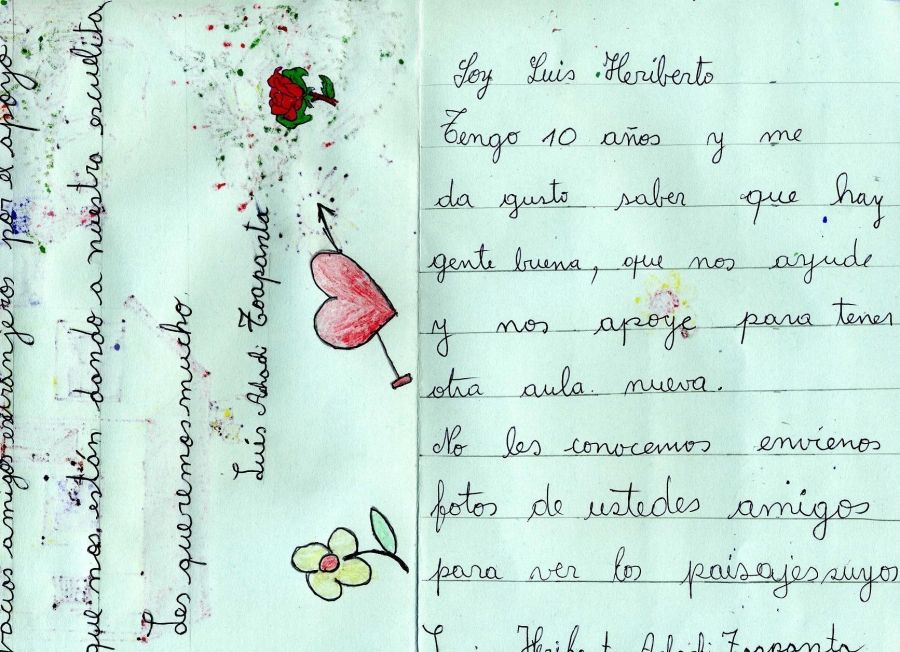 amigos extranjeros por el apoyo
que nos están dando a nuestra escuelita
Les queremos mucho.
Luis Ashadi Toapanta
Soy Luis Heriberto
Tengo 10 años y me
da gusto saber que hay
gente buena, que nos ayude
y nos apoye para tener
otra aula nueva.
No les conocemos envienos
fotos de ustedes amigos
para ver los paisajes suyos